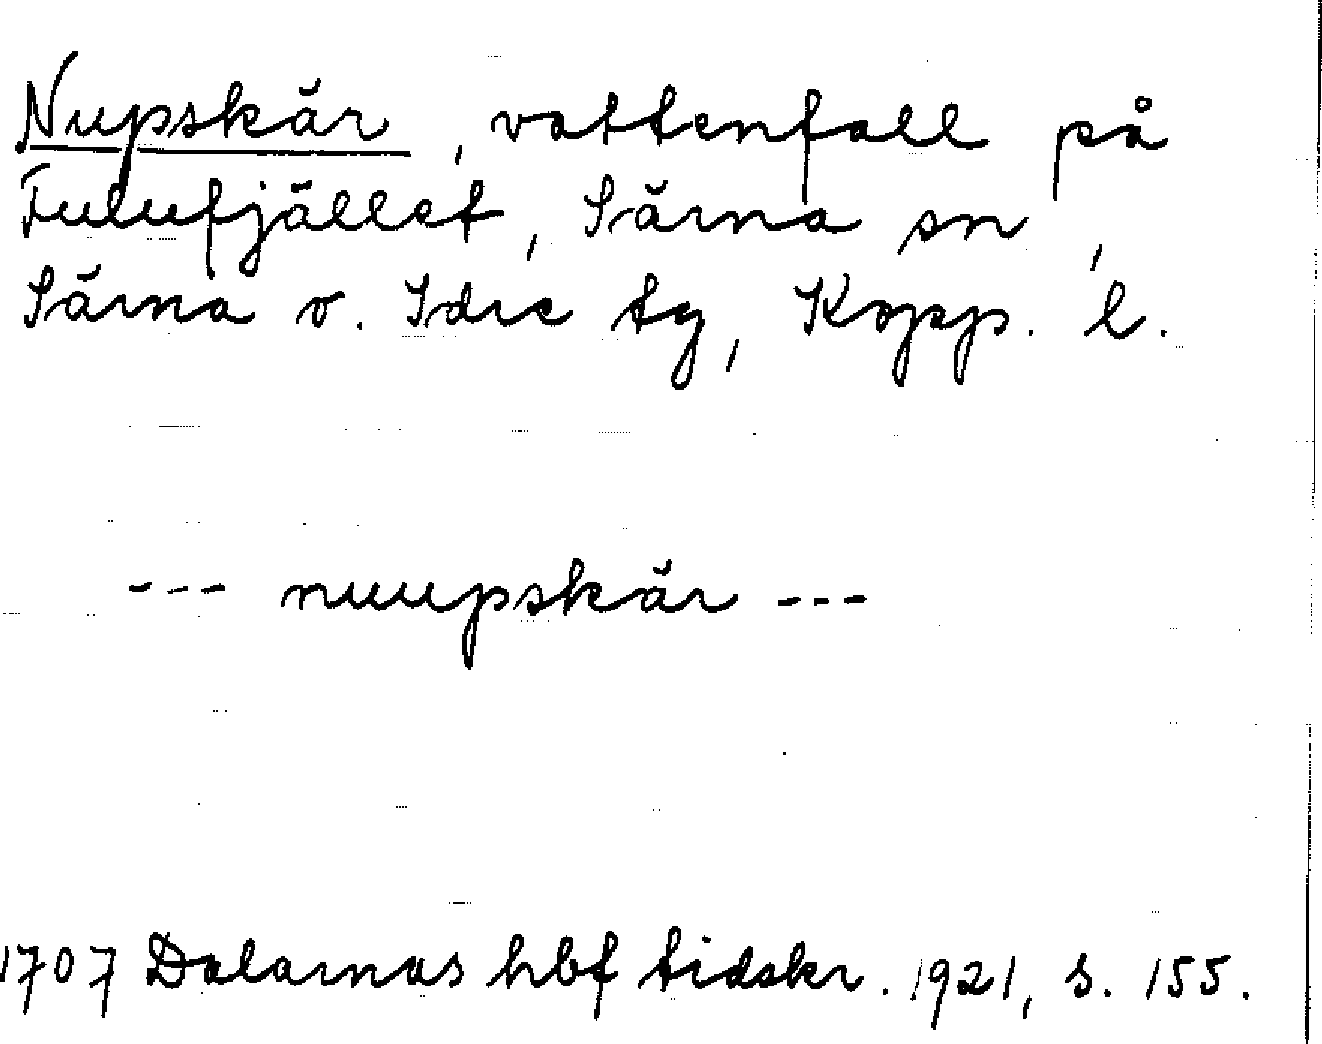 Nupskär, vattenfall på
Fulufjället, Särna sn,
Särna o. Idre tg, Kopp. l.
--- nuupskär ---
1707 Dalarnas hbf tidskr. 1921, s. 155.